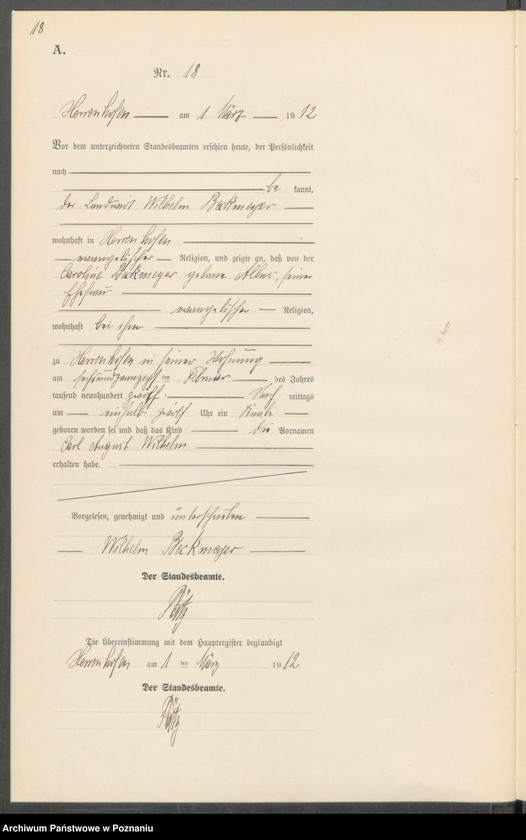 18
A.
Nr. 18
Herrenhofen am 1 März 1912
Vor dem unterzeichneten Standesbeamten erschien heute, der Persönlichkeit
nach
be kannt,
der Landwirt Wilhelm Backmeyer
wohnhaft in Herrenhofen
evangelischer Religion, und zeigte an, daß von der
Caroline Backmeyer geborne Albus, seiner
Ehefrau
evangelischer Religion,
wohnhaft bei ihm
zu Herrenhofen in seiner Wohnung
am sechsundzwanzigsten Februar des Jahres
tausend neunhundert zwölf Nach mittags
um einhalb zwölf Uhr ein Knabe
geboren worden sei und daß das Kind die Vornamen
Carl August Wilhelm
erhalten habe.
Vorgelesen, genehmigt und unterschrieben
Wilhelm Backmeyer
Der Standesbeamte.
Die Übereinstimmung mit dem Hauptregister beglaubigt
Herrenhofen am 1 ten März 1912
Der Standesbeamte.
Archiwum Państwowe w Poznaniu